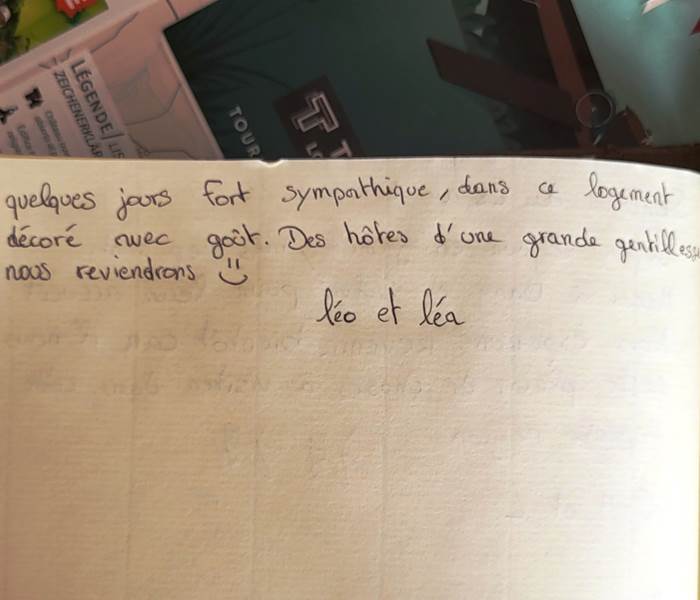 LÉGENDE
ZEICHENERKLÄR
LIS
TOUR
quelques jours fort sympathique, dans ce logement
décoré avec goût. Des hôtes d'une grande gentillesse
nous reviendrons
léo et léa